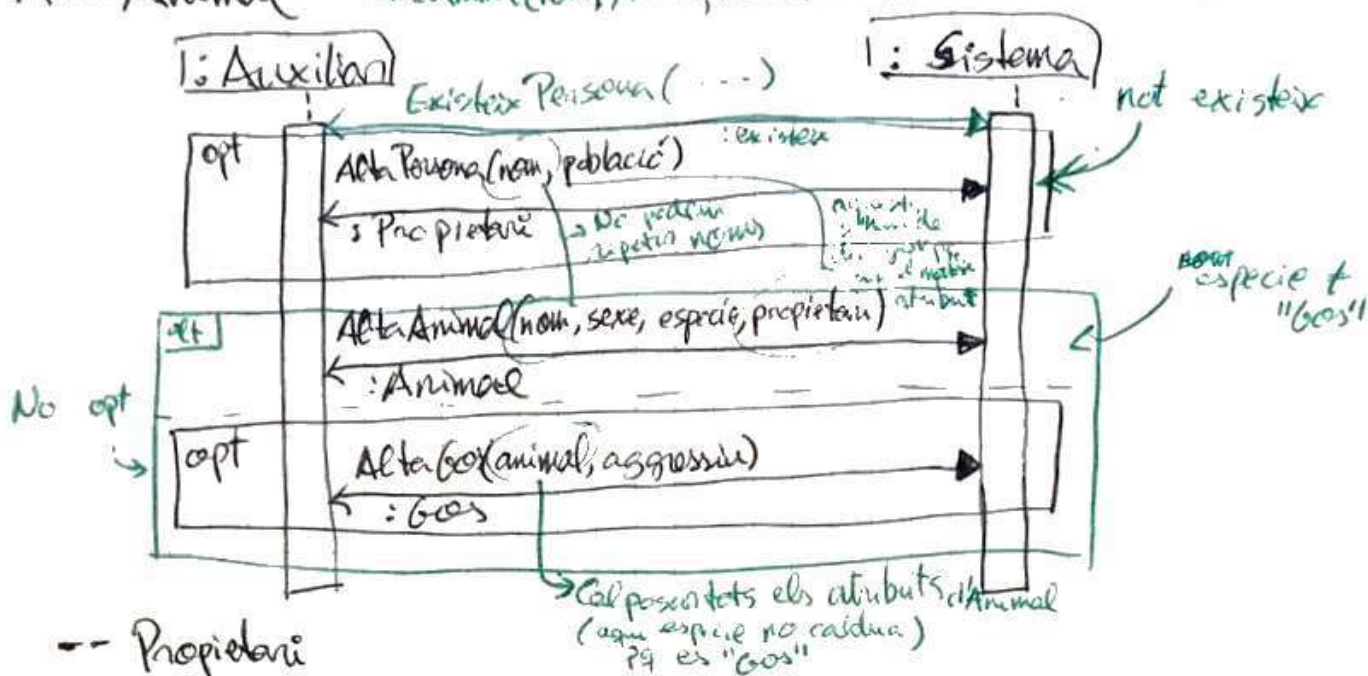 1: Auxiliar
1: Sistema
Existeix Persona (...)
: existeix
not existeix
opt
Alta Persona (nom, població)
: Propietari
No podem
repetir noms
atribut
especie ≠
"Gos"
alt
Alta Animal (nom, sexe, especie, propietari)
: Animal
No opt
opt
Alta Gos (animal, aggressiu)
: Gos
Cal posar tots els atributs d'Animal
(aquí especie no caldria)
pq es "Gos"
-- Propietari